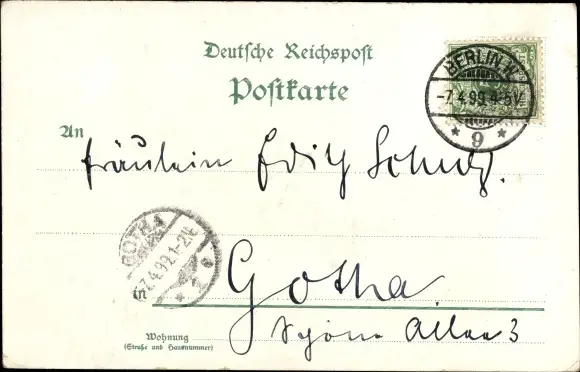 Deutsche Reichspost
Postkarte
BERLIN.W.
-7.4.99.4-5V.
* 9 *
An
Fräulein Edith Schulz.
GOTHA
7.4.99.1-2N.
* 2 e
in
Gotha
Schöne Allee 3
Wohnung
(Straße und Hausnummer)